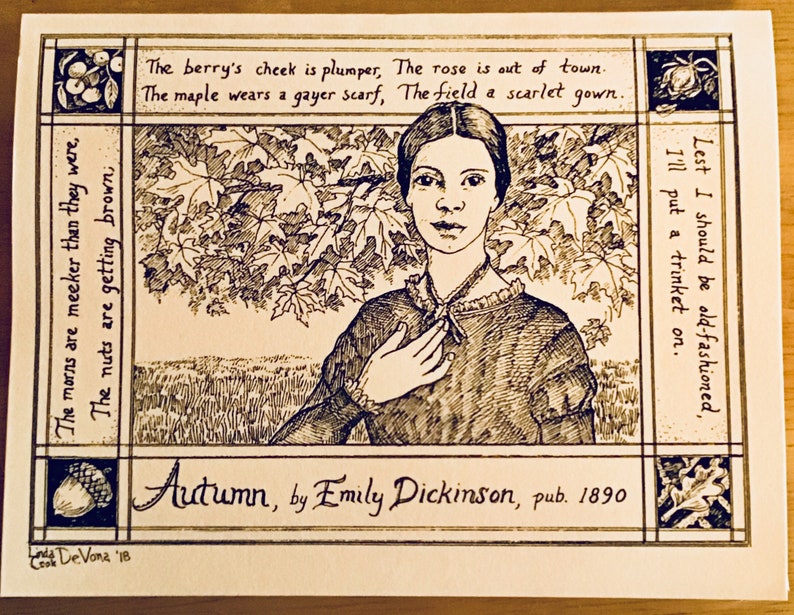 The morns are meeker than they were,
The nuts are getting brown;
The berry's cheek is plumper, The rose is out of town.
The maple wears a gayer scarf, The field a scarlet gown.
Lest I should be old-fashioned,
I'll put a trinket on.
Autumn, by Emily Dickinson, pub. 1890
Linda
Cook DeVona '18